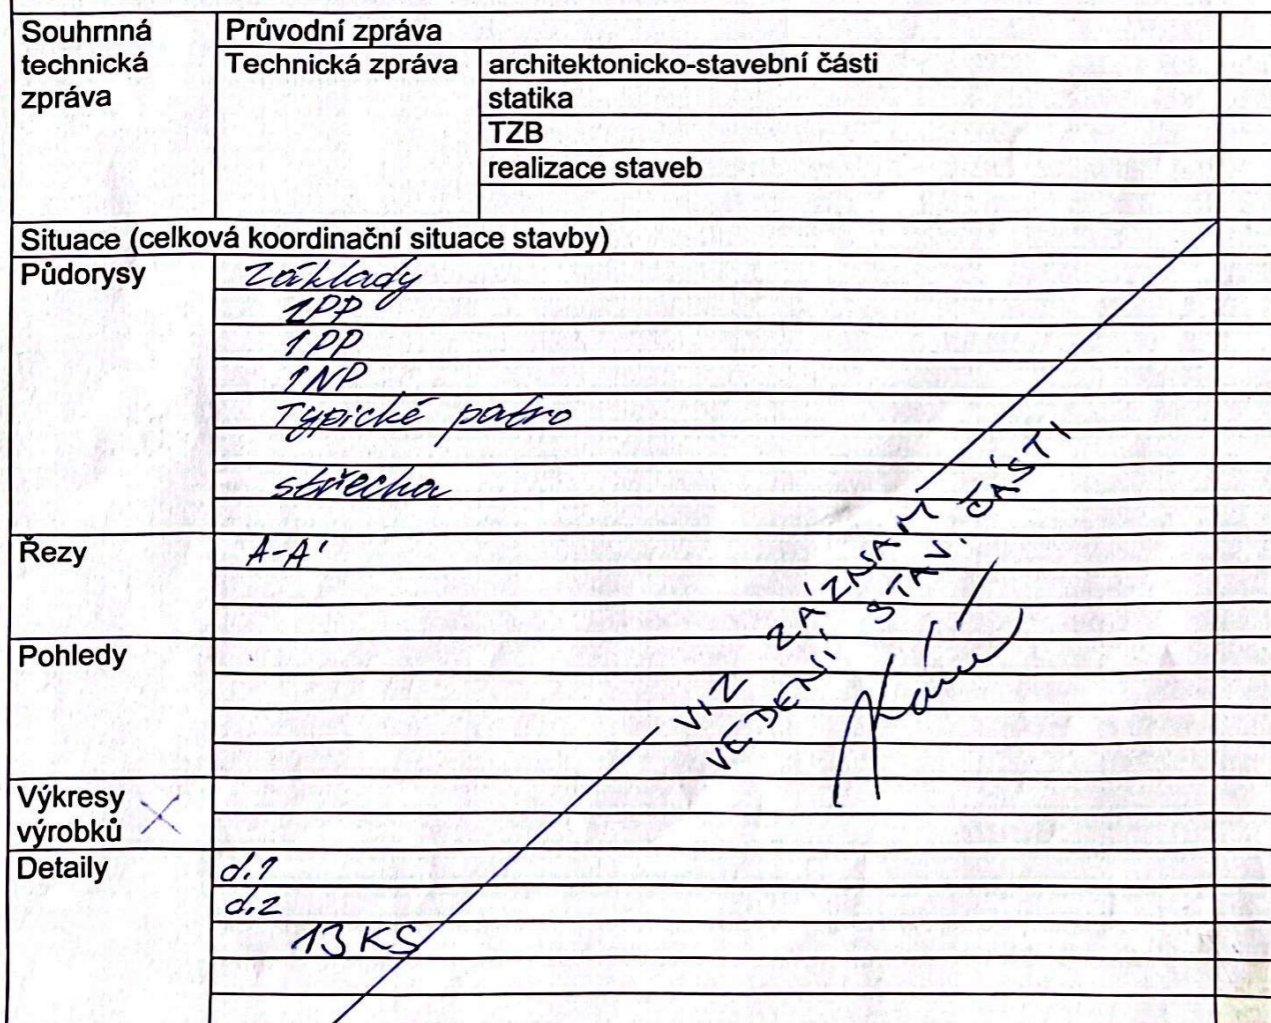 Souhrnná technická zpráva
Průvodní zpráva
Technická zpráva
architektonicko-stavební části
statika
TZB
realizace staveb
Situace (celková koordinační situace stavby)
Půdorysy
Základy
2PP
1PP
1NP
Typické patro
střecha
Řezy
A-A'
Pohledy
VIZ ZÁZNAM
VEDENÍ STAV. ČÁSTI
Výkresy výrobků
Detaily
d.1
d.2
13 KS